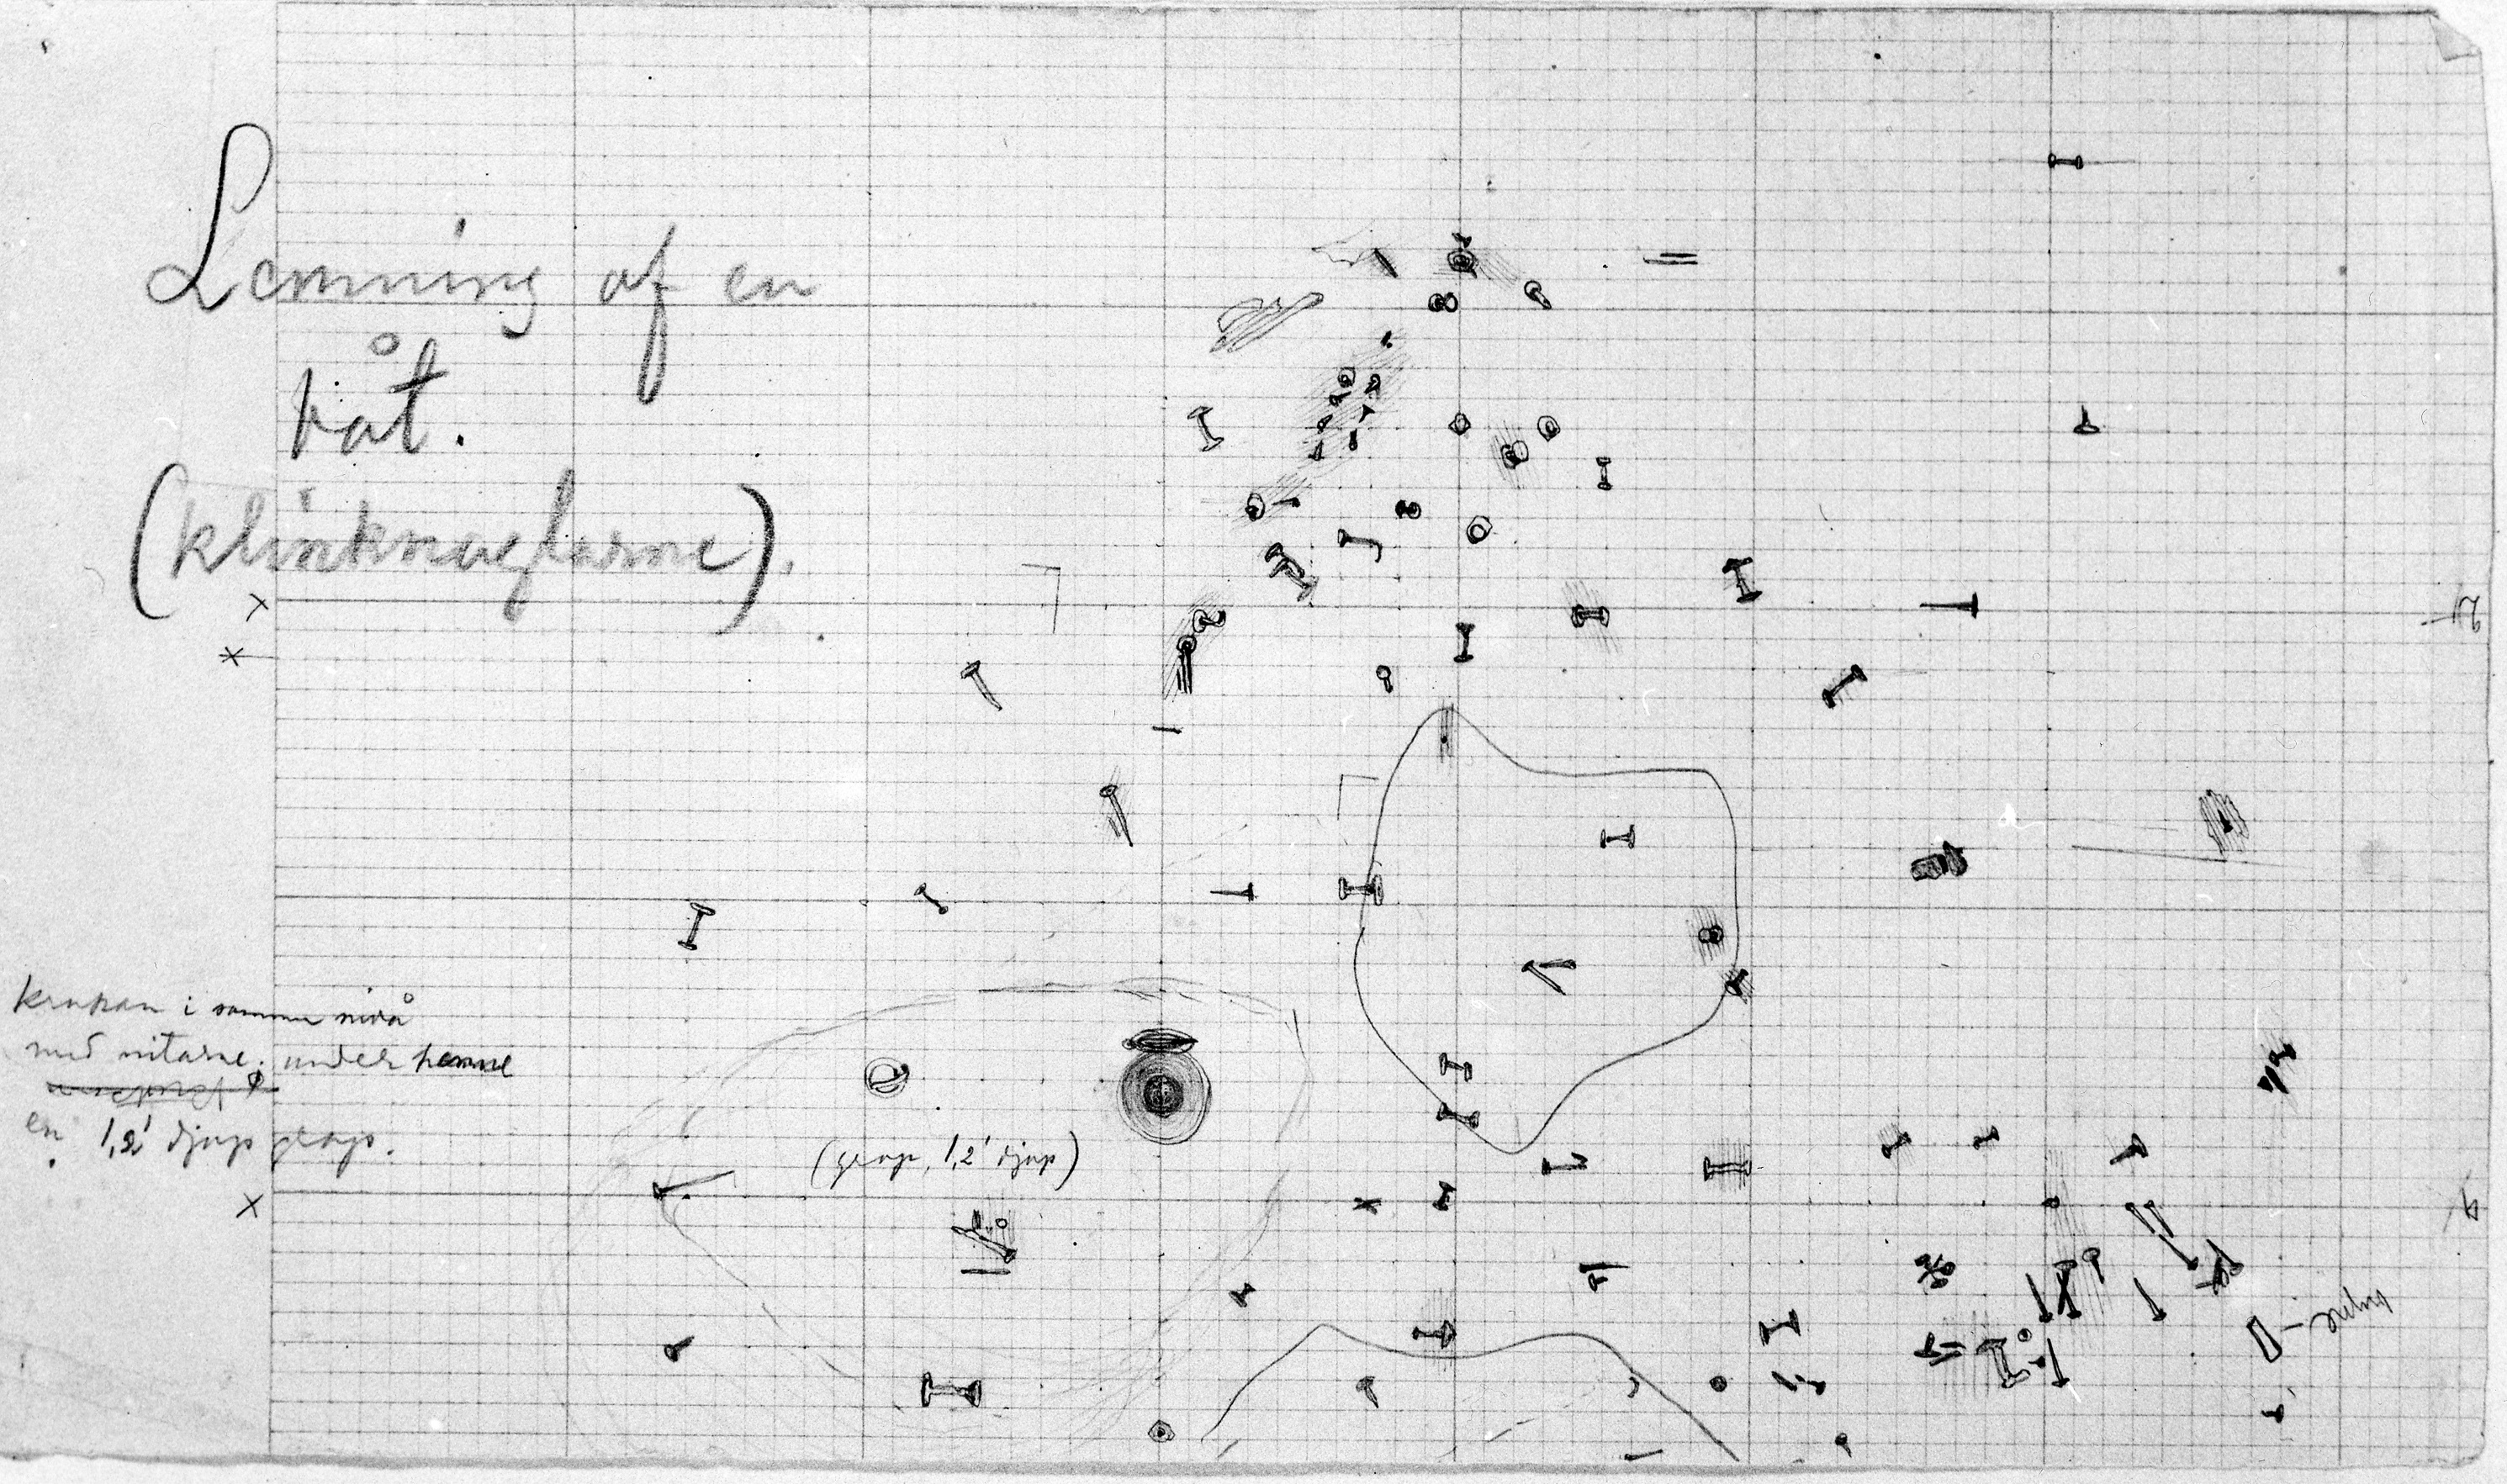 Lemning af en
båt.
(klinknaglarne).
krukan i samma nivå
med nitarne; under henne
en 1,2' djup grop.
(grop, 1,2' djup)